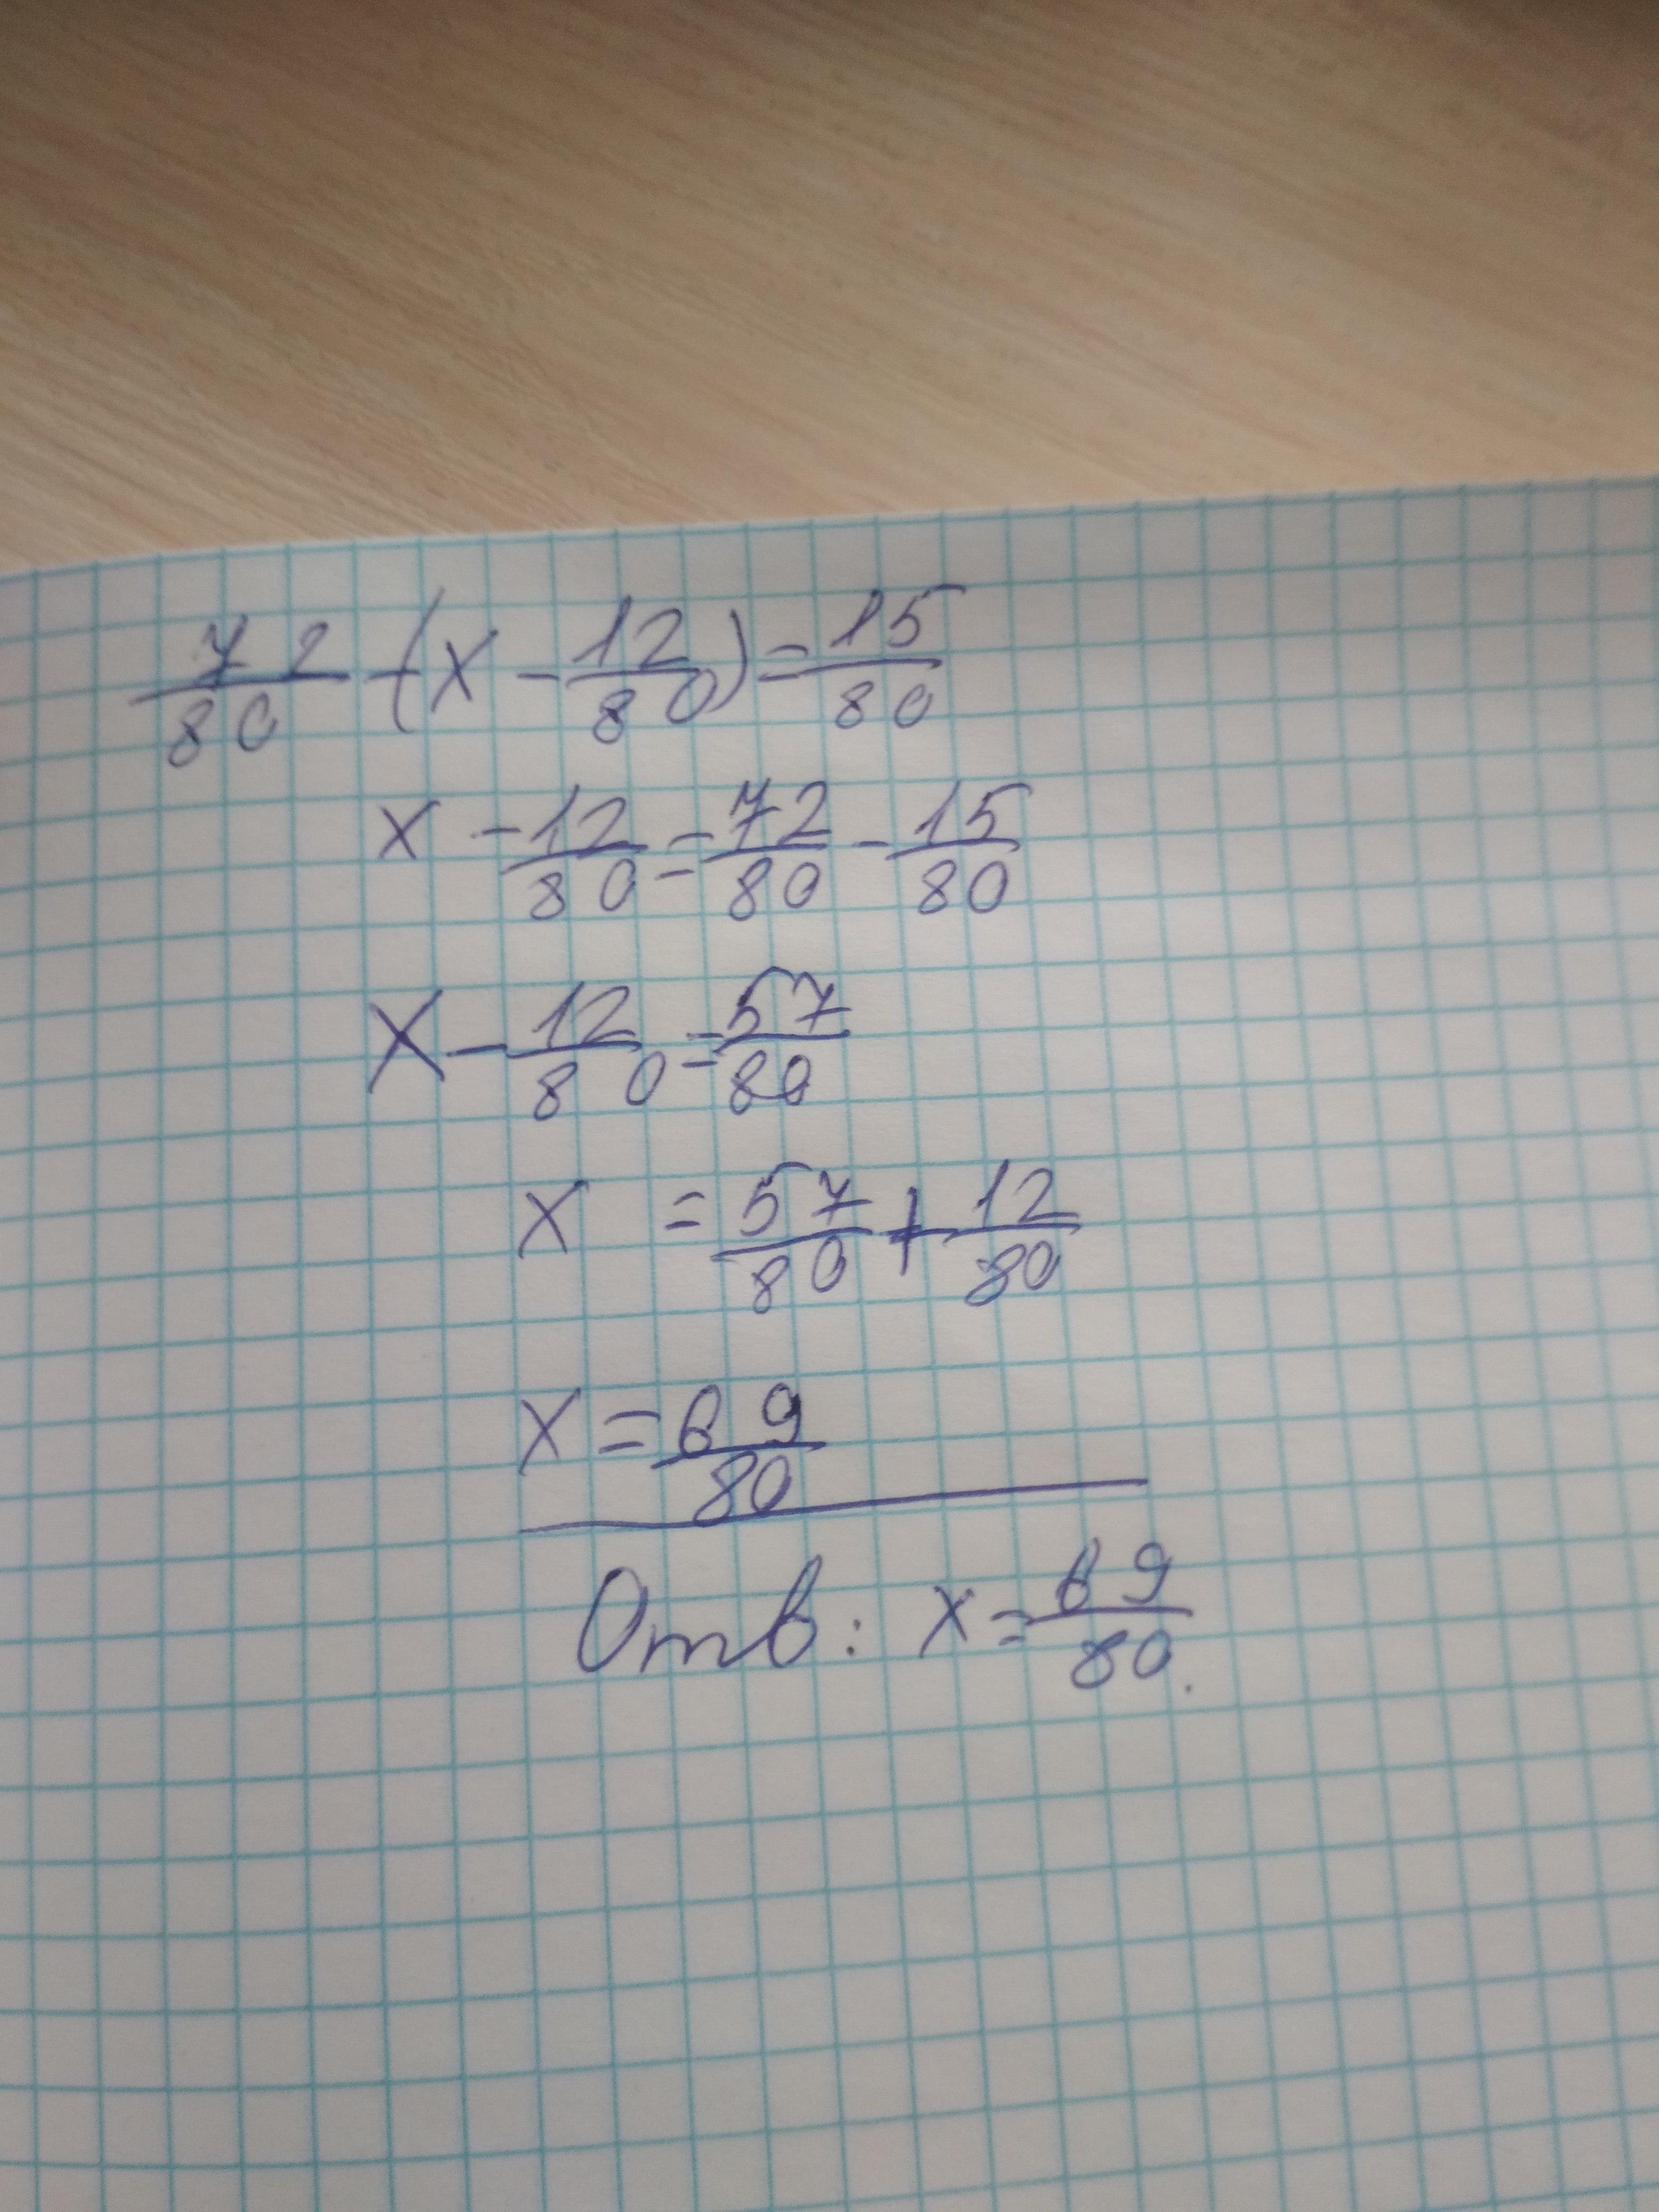 72/80 - (x - 12/80) = 15/80
x - 12/80 = 72/80 - 15/80
x - 12/80 = 57/80
x = 57/80 + 12/80
x = 69/80
Отв: x = 69/80.